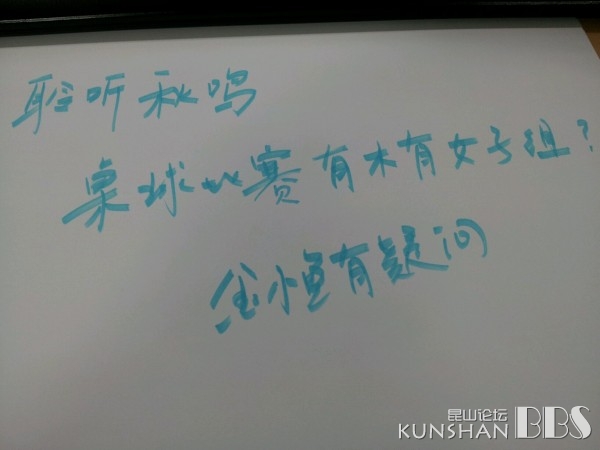 聆听秋鸣
桌球比赛有木有女子组?
金小鱼有疑问
昆山论坛
KUNSHAN BBS